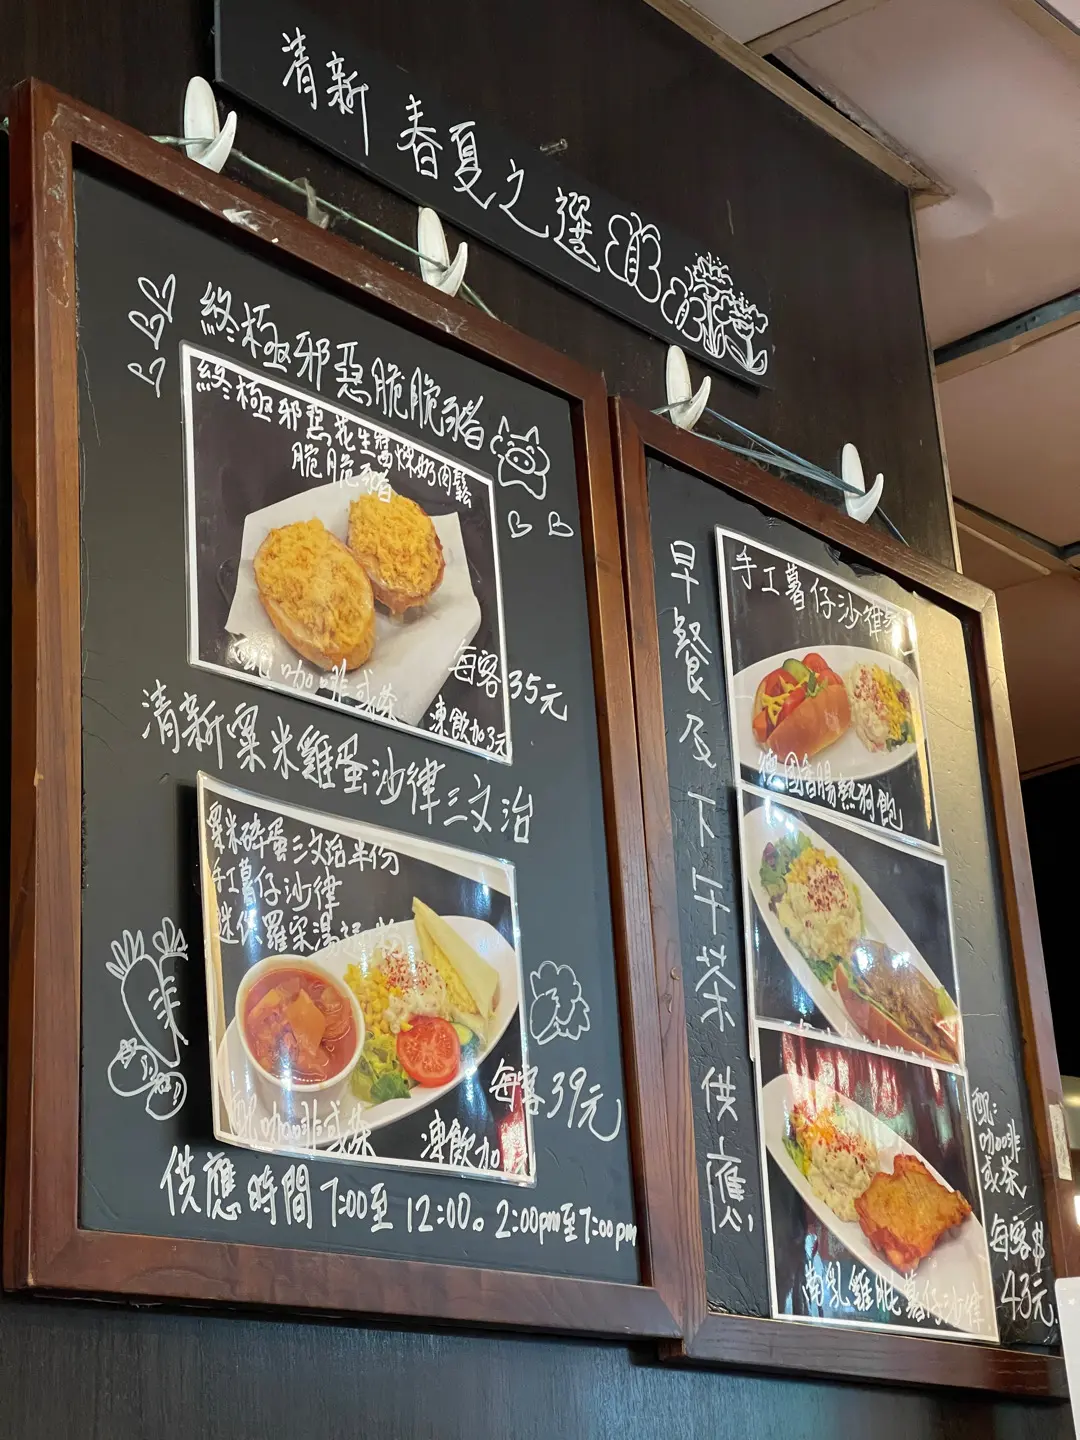 清新 春夏之選
終極邪惡脆脆豬
終極邪惡花生醬煉奶肉鬆
脆脆豬
咖啡或茶
每客35元
凍飲加3元
清新粟米雞蛋沙律三文治
粟米碎蛋三文治半份
手工薯仔沙律
迷你羅宋湯
配咖啡或茶
每客39元
凍飲加
供應時間 7:00至12:00。2:00pm至7:00pm
早餐及下午茶供應
手工薯仔沙律
德國香腸熱狗飽
南乳雞肶薯仔沙律
配:
咖啡
或茶
每客
43元